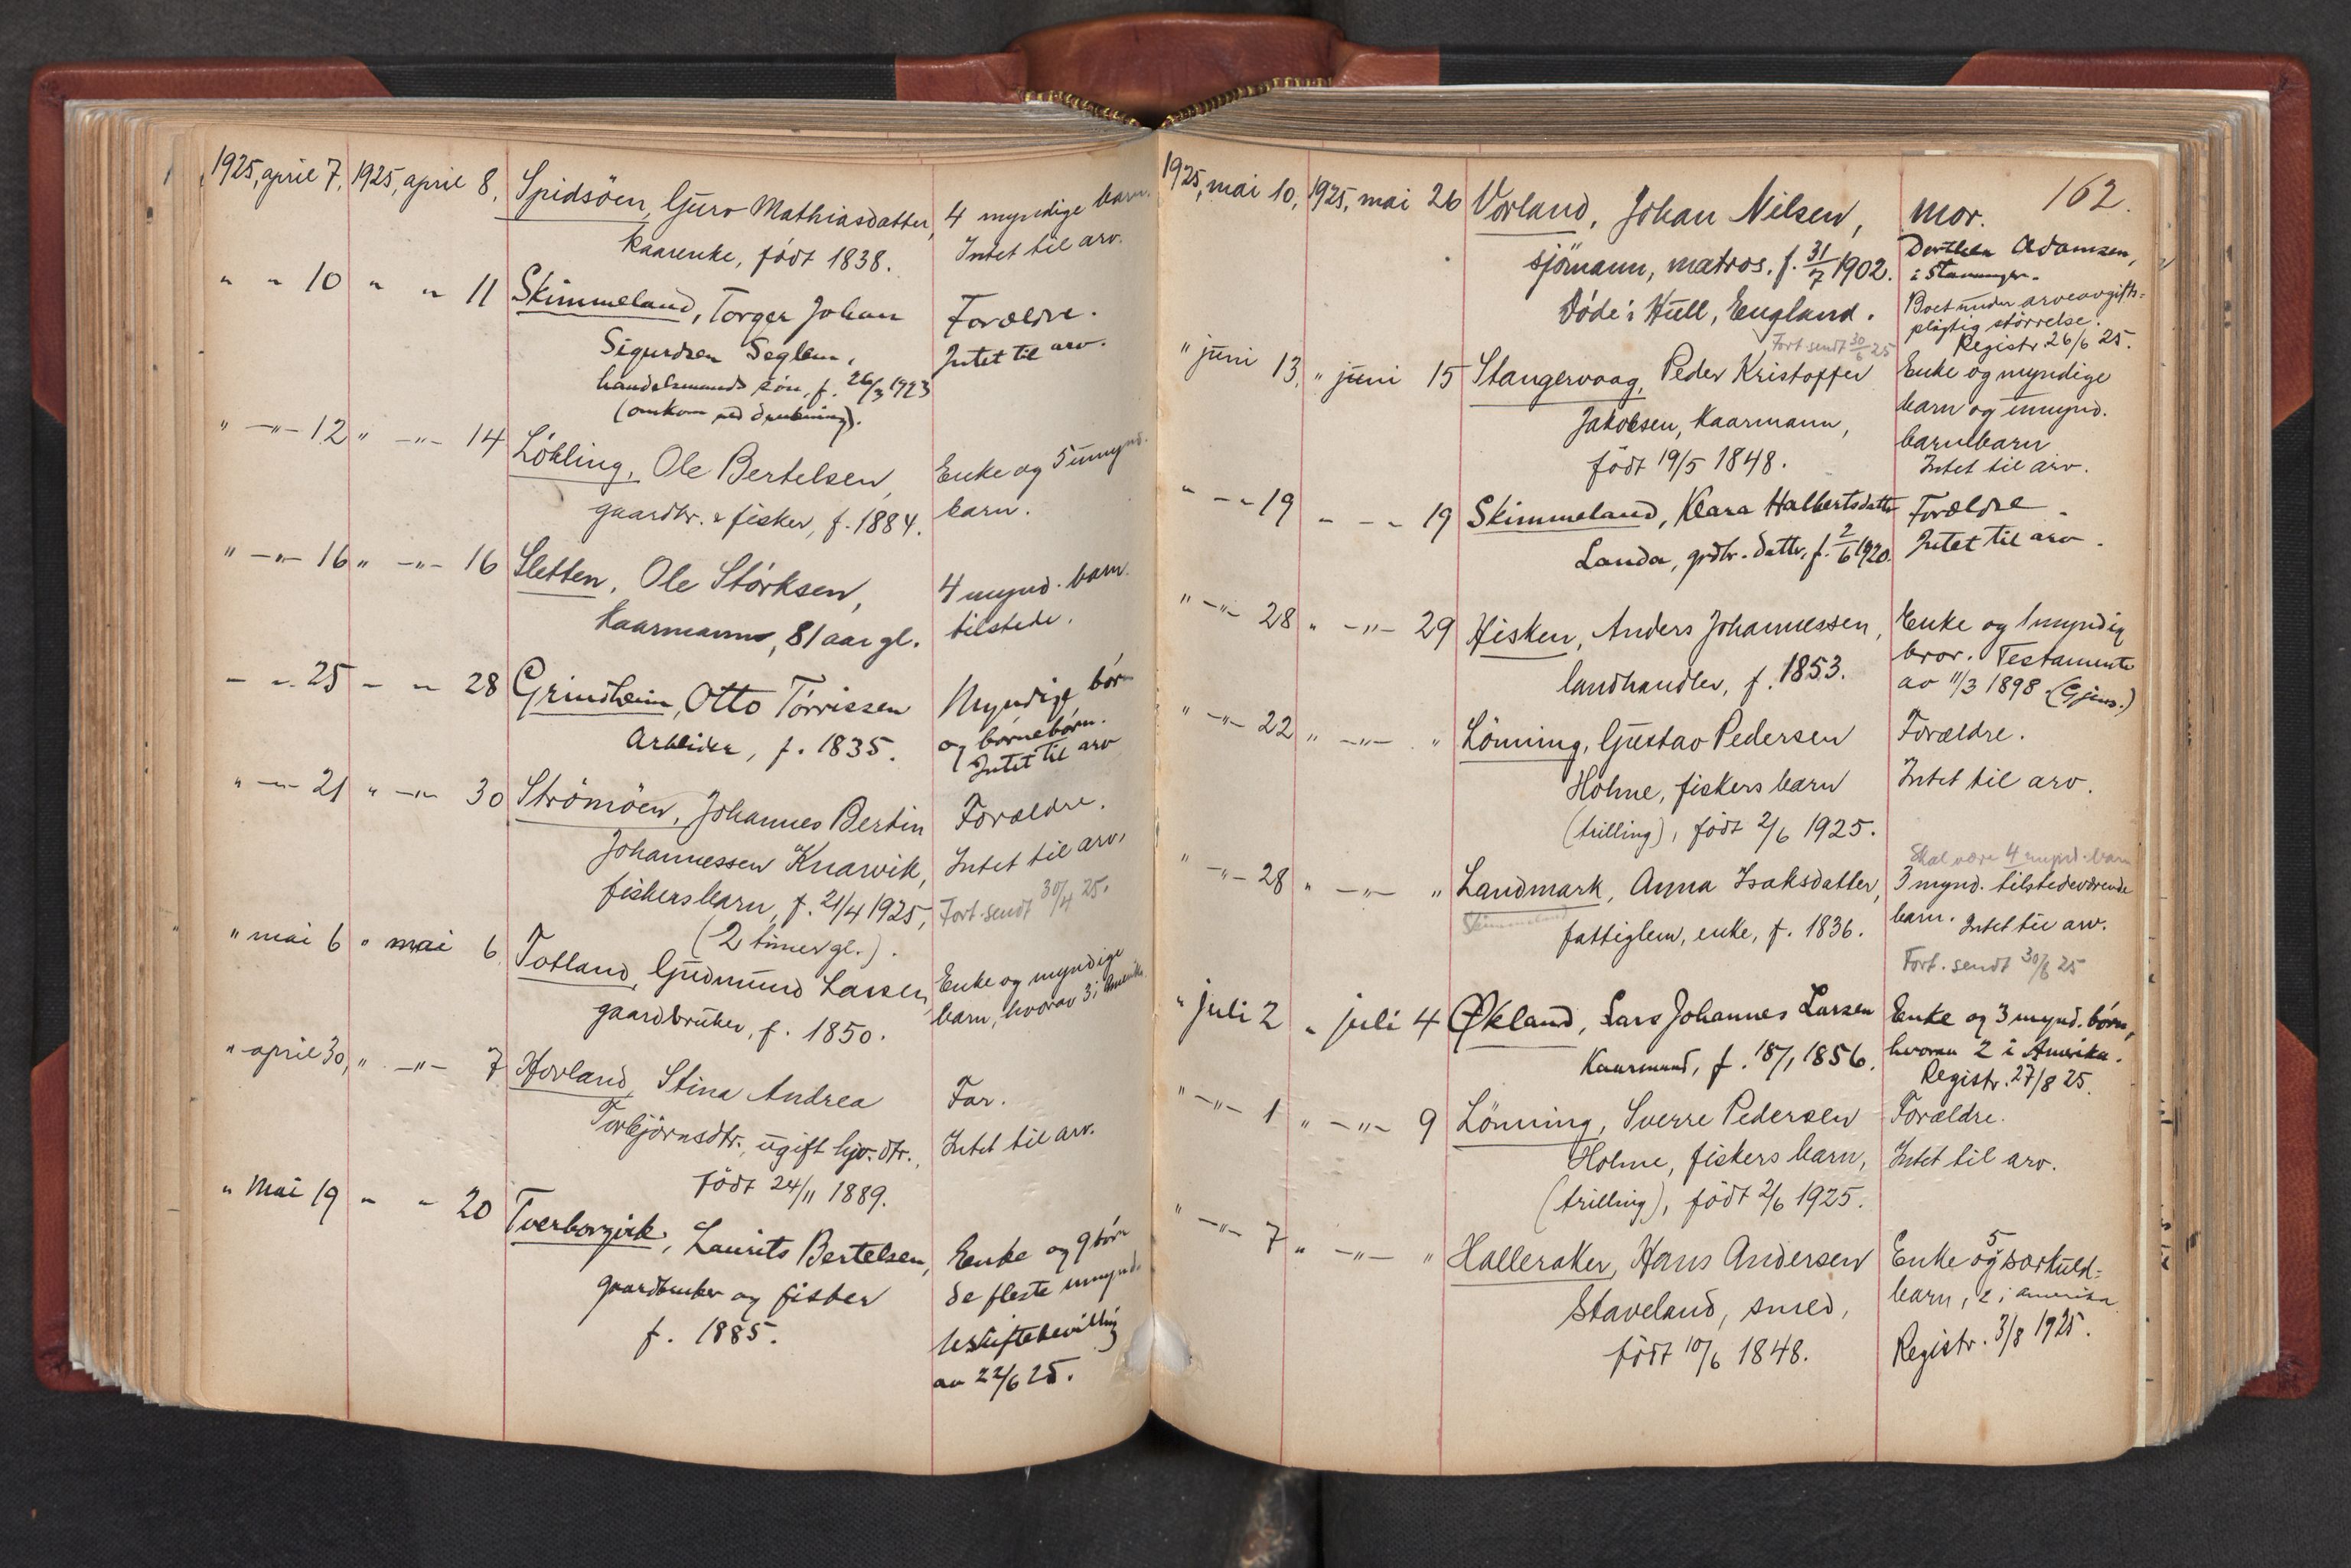 1925, april 7, 1925, april 8, Spidsöen, Guro Mathiasdatter, 4 myndige barn.
kaarenke, født 1838. Intet til arv.
" " 10 " " 11 Skimmeland, Torger Johan Forældre.
Sigurdsen Seglem, Intet til arv.
handelsmands sön, f. 26/3 1923
(omkom ved drukning).
" -"- 12 " -"- 14 Lökling, Ole Bertelsen, Enke og 5 umynd.
gaardbr. & fisker, f. 1884. barn.
" -"- 16 " -"- 16 Sletten, Ole Störksen, 4 mynd. barn
kaarmann, 81 aar gl. tilstede.
" " 25 " " 28 Grindheim, Otto Törrissen Myndige börn
Arbeider, f. 1835. og börnebörn.
Intet til arv
" -"- 21 " -"- 30 Strömöen, Johannes Bertin Forældre.
Johannessen Knarvik, Intet til arv.
fiskers barn, f. 21/4 1925, Fort. sendt 30/4 25.
(2 timer gl.).
" mai 6 " mai 6 Totland, Gudmund Larsen, Enke og myndige
gaardbruker, f. 1850. barn, hvorav 3 i Amerika.
" april 30, " -"- 7 Hovland, Stina Andrea Far.
Torbjörnsdtr., ugift hjv. dtr., Intet til arv.
født 24/11 1889.
" Mai 19 " " 20 Tverborgvik, Laurits Bertelsen, Enke og 9 börn
gaardbruker og fisker de fleste umynd.
f. 1885. Uskiftebevilling
av 22/6 25.
162.
1925, mai 10, 1925, mai 26 Vorland, Johan Nilsen, Mor.
sjömann, matros. f. 31/7 1902. Dorthea Adamsen,
i Stavanger.
Döde i Hull, England. Boet under arveavgifts=
pligtig störrelse.
Fort. sendt 30/6 25 Registr. 26/6 25.
" juni 13, " juni 15 Stangervaag, Peder Kristoffer Enke og myndige
Jakobsen, kaarmann, barn og umynd.
født 19/5 1848. barnebarn
Intet til arv.
" - " 19 " - " 19 Skimmeland, Klara Halbertsdatter Forældre
Landa, grdbr. datter, f. 2/6 1920. Intet til arv.
" -"- 28 " -"- 29 Hisken, Anders Johannessen, Enke og 1 myndig
landhandler, f. 1853. bror. Testamente
av 11/3 1898 (Gjens.)
" -"- 22 " -"- " Lönning, Gustav Pedersen Forældre.
Holme, fiskers barn Intet til arv.
(trilling), født 2/6 1925.
Skal være 4 mynd. barn
" -"- 28 " -"- " Landmark, Anna Isaksdatter, 3 mynd. tilstedeværende
Skimmeland fattiglem, enke, f. 1836. barn. Intet til arv.
Fort. sendt 30/6 25
" juli 2 " juli 4 Økland, Lars Johannes Larsen Enke og 3 mynd. börn,
Kaarmand, f. 18/1 1856. hvorav 2 i Amerika.
Registr. 27/8 25.
" -"- 1 " -"- 9 Lönning, Sverre Pedersen Forældre.
Holme, fiskers barn, Intet til arv.
(trilling), født 2/6 1925.
" -"- 7 " -"- " Halleraker, Hans Andersen Enke og 5 særkuld=
Staveland, smed, barn, 2 i Amerika.
født 10/6 1848. Registr. 3/8 1925.